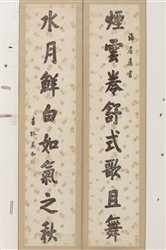 煙雲卷舒式歌且舞
水月鮮白如氣之秋